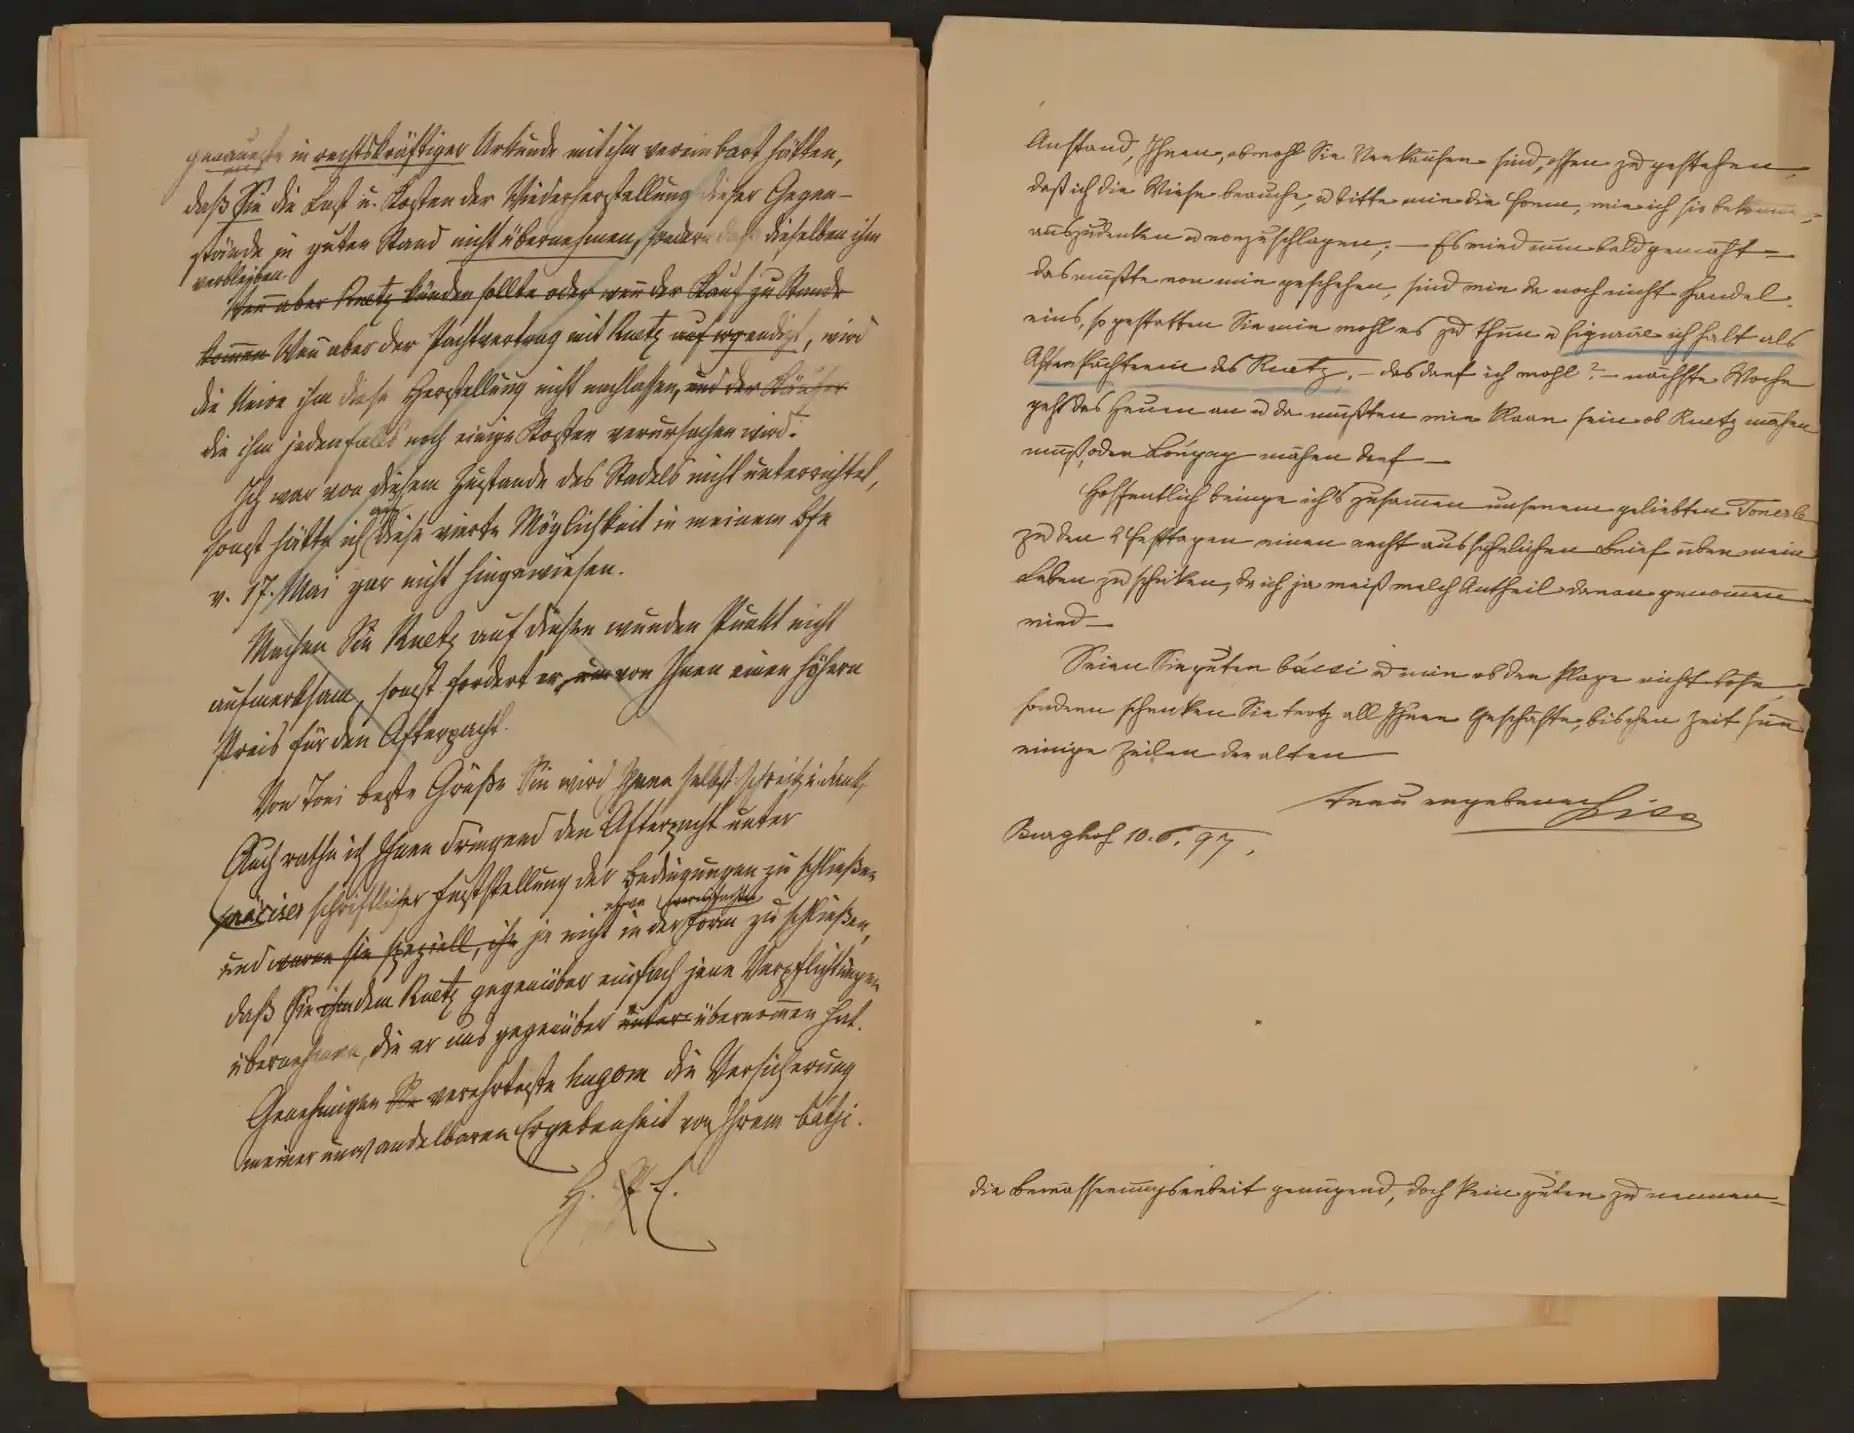 genaueste in rechtskräftiger Urkunde mit ihm vereinbart hätten,
daß Sie die Last u. Kosten der Wiederherstellung dieser Gegen-
stände in guten Stand nicht übernehmen, sondern daß dieselben ihm
verbleiben.
Wenn aber Ruetz künden sollte oder wen̄ der Kauf zu Stande
kom̄en Wen̄ aber der Pachtvertrag mit Ruetz auf irgendigt, wird
die ihm diese Herstellung nicht nachlassen, und der Käufer
die ihm jedenfalls noch einige Kosten verursachen wird.
Ich war von diesem Zustande des Stadels nicht unterrichtet,
sonst hätte ich auf diese vierte Möglichkeit in meinem
v. 17. Mai gar nicht hingewiesen.
Machen Sie Ruetz auf diesen wunden Punkt nicht
aufmerksam, sonst fordert er von Ihnen einen höhern
Preis für den Afterpacht.
Von Toni beste Grüße Sie wird Ihnen selbst schreiben
Auch rathe ich Ihnen dringend den Afterpacht unter
präciser schriftlicher Feststellung der Bedingungen zu schließen
und warne Sie speziell, ihn ja nicht in der Form zu schließen,
daß Sie ihm dem Ruetz gegenüber einfach jene Verpflichtungen
übernehmen, die er uns gegenüber unter übernom̄en hat.
Genehmigen Sie verehrteste hugom die Versicherung
meiner unwandelbaren Ergebenheit von Ihrem bátji.
H.
Anstand, Ihnen, obwohl Sie Verkäufer sind, offen zu gestehen,
daß ich die Wiese brauche, u bitte mir die Form, wie ich sie bekom̄e
auszudenken u vorzuschlagen; — Es wird nun bald gemäht —
das müßte von mir geschehen, sind wir da noch nicht Handel-
eins, so gestatten Sie mir wohl es zu thun u figurire ich halt als
Afterpächterin des Ruetz, — das darf ich wohl? — nächste Woche
geht das Heuen an u da müßten wir klaar sein ob Ruetz mähen
muß, oder mähen darf —
Hoffentlich bringe ich's zusam̄en unserem geliebten Tonerle
zu den Festtagen einen recht ausführlichen Brief über mein
Leben zu schicken, da ich ja weiß welch Antheil daran genom̄en
wird —
Seien Sie guter bácsi u mir ob der Plage nicht böse
sondern schenken Sie trotz all Ihrer Geschäfte, bischen Zeit für
einige Zeilen der alten
treu ergebenen Lisa
Burghof 10. 6. 97.
die Bewässerungsarbeit genügend, doch kein guter zu nennen —